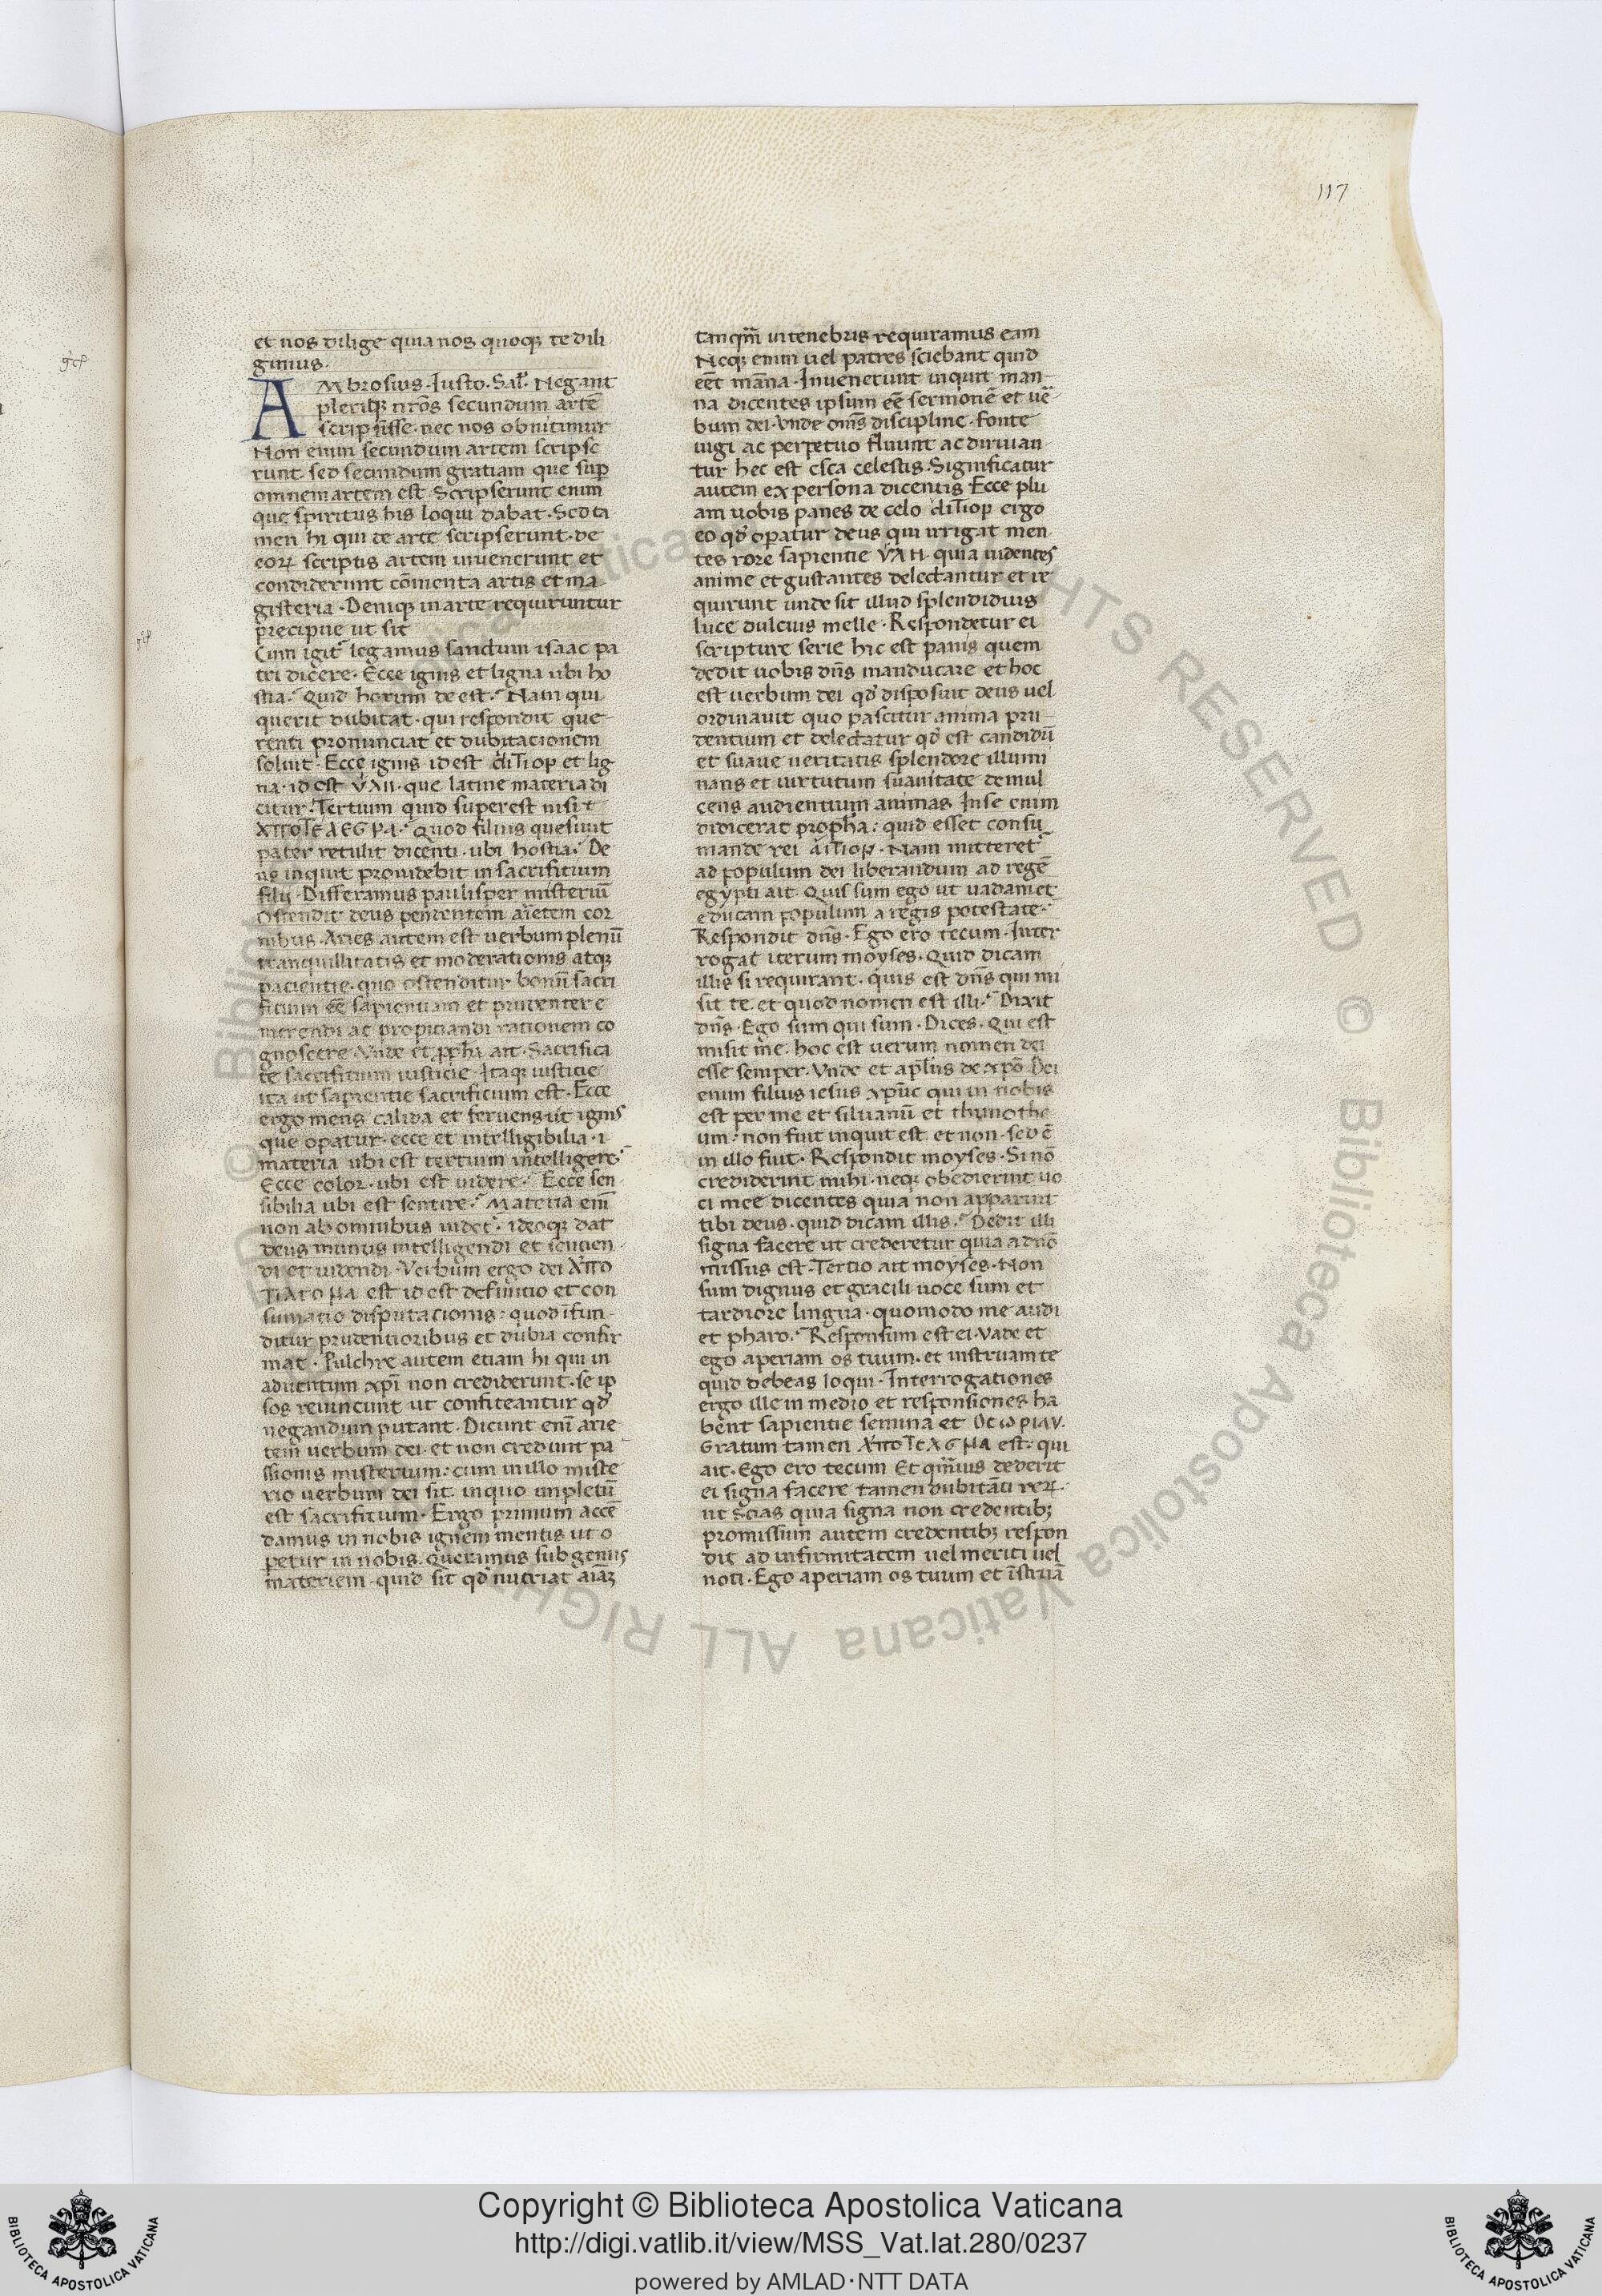 117
et nos dilige quia nos quoqꝫ te dili
gimus.
AMbrosius. Iusto. Sal̃. Negant
pleriqꝫ nr̃os secundum artẽ
scripsisse. nec nos obnitimur
Non enim secundum artem scripse
runt sed secundum gratiam que sup
omnem artem est. Scripserunt enim
que spiritus his loqui dabat. Sed ta
men hi qui de arte scripserunt. de
eoꝝ scriptis artem inuenerunt et
condiderunt cõmenta artis et ma-
gisteria. Deniqꝫ in arte requiruntur
precipue ut sit
Cum igit̃ legamus sanctum isaac pa
tri dicere. Ecce ignis et ligna ubi ho
stia. Quid horum de est. Nam qui
querit dubitat. qui respondit que-
renti pronunciat et dubitacionem
soluit. Ecce ignis id est aiTiop et lig
na. id est VλII. que latine materia di
citur. Tertium quid superest nisi τ
XΠOTEAEGPA. Quod filius quesiuit
pater retulit dicenti. ubi hostia. De
us inquit prouidebit in sacrifitium
filij. Differamus paulisper misteriũ
Ostendit deus pendentem arietem cor
nibus. Aries autem est uerbum plenũ
tranquillitatis et moderationis atqꝫ
pacientie. quo ostenditur bonũ sacri
fitium eẽ sapientiam et prudenter e
merendi ac propitiandi rationem co
gnoscere. Vnde et ꝓph̃a ait. Sacrifica
te sacrifitium iusticie. Itaqꝫ iusticie
ita ut sapientie sacrificium est. Ecce
ergo mens calida et feruens ut ignis
que opatur. ecce et intelligibilia. i
materia ubi est tertium intelligere.
Ecce color. ubi est uidere. Ecce sen
sibilia ubi est sentire. Materia eni᷃
non ab omnibus uidet᷃. ideoqꝫ dat
deus munus intelligendi et sentien-
di et uidendi. Verbum ergo dei XΠO
TIATOHA est id est definitio et con
sumatio disputacionis: quod ĩfun-
ditur prudentioribus et dubia confir
mat. Pulchre autem etiam hi qui in
aduentum xp̃i non crediderunt. se ip
sos reuincunt ut confiteantur qd̃
negandum putant. Dicunt eni᷃ arie
tem uerbum dei. et non credunt pa-
ssionis misterium: cum in illo miste
rio uerbum dei sit in quo impletũ
est sacrifitium. Ergo primum accẽ
damus in nobis ignem mentis ut o
petur in nobis. Queramus sub genus
materiem. quid sit qd̃ nutriat aiãꝫ
tanqm̃ in tenebris requiramus eam
Neqꝫ enim uel patres sciebant quid
eẽt man̄na. Inuenerunt inquit man-
na dicentes ipsum eẽ sermonẽ et ue᷃-
bum dei. Vnde om̃s discipline. fonte
iugi ac perpetuo fluunt ac diriuan-
tur hec est esca celestis. Significatur
autem ex persona dicentis Ecce plu
am uobis panes de celo aiTiop ergo
eo qd̃ opatur deus qui irrigat men-
tes rore sapientie VλII. quia uidentes
anime et gustantes delectantur et re
quirunt unde sit illud splendidius
luce dulcius melle. Respondetur ei
scripture serie hic est panis quem
dedit uobis dñs manducare et hoc
est uerbum dei qd̃ disposuit deus uel
ordinauit quo pascitur anima pru-
dentium et delectatur qd̃ est candidũ
et suaue ueritatis splendore illumi
nans et uirtutum suauitate demul
cens audientium animas. In se enim
didicerat proph̃a: quid esset consu
mande rei aiTiop. Nam mitteret᷃
ad populum dei liberandum ad regẽ
egypti ait. Quis sum ego ut uadam et
educam populum a regis potestate.
Respondit dñs. Ego ero tecum. Inter
rogat iterum moyses. Quid dicam
illis si requirant. quis est dñs qui mi
sit te. et quod nomen est illi. Dixit
dñs. Ego sum qui sum. Dices. Qui est
misit me. hoc est uerum nomen dei
esse semper. Vnde et apl̃us de xpõ Dei
enim filius iesus xp̃uc qui in nobis
est per me et siluanũ et thimothe
um: non fuit inquit est et non. sed ẽ
in illo fuit. Respondit moyses. Si nõ
crediderint mihi. neqꝫ obedierint uo
ci mee dicentes quia non apparuit
tibi deus. quid dicam illis. Dedit illi
signa facere ut crederetur quia a dño
missus est. Tertio ait moyses. Non
sum dignus et gracili uoce sum et
tardiore lingua. quomodo me audi
et pharo. Responsum est ei. Vade et
ego aperiam os tuum. et instruam te
quid debeas loqui. Interrogationes
ergo ille in medio et responsiones ha
bent sapientie semina et θεωpiav.
Gratum tamen XΠOTEλGHA est. qui
ait. Ego ero tecum Et qm̃uis dederit
ei signa facere tamen dubitãti reꝝ.
ut scias quia signa non credentibꝫ
promissum autem credentibꝫ respon
dit ad infirmitatem uel meriti uel
uoti. Ego aperiam os tuum et ĩstruã
Copyright © Biblioteca Apostolica Vaticana
http://digi.vatlib.it/view/MSS_Vat.lat.280/0237
powered by AMLAD·NTT DATA
BIBLIOTECA APOSTOLICA VATICANA
BIBLIOTECA APOSTOLICA VATICANA